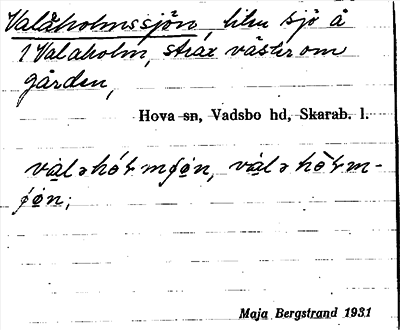 Valåholmssjön, liten sjö å
1 Valaholm, strax väster om
gården,
Hova sn, Vadsbo hd, Skarab. l.
vàləhół mʃøn, válə hòłm-
ʃøn;
Maja Bergstrand 1931